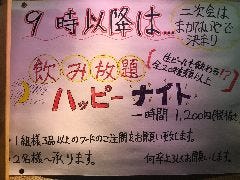 9時以降は…
二次会は
まかないやで
決まり
飲み放題
生ビールも飲める!?
全20種類以上
ハッピーナイト
一時間 1,200円(税抜)
・1組様3品以上のフードのご注文をお願い致します。
・2名様〜承ります。
何卒よろしくお願いします。